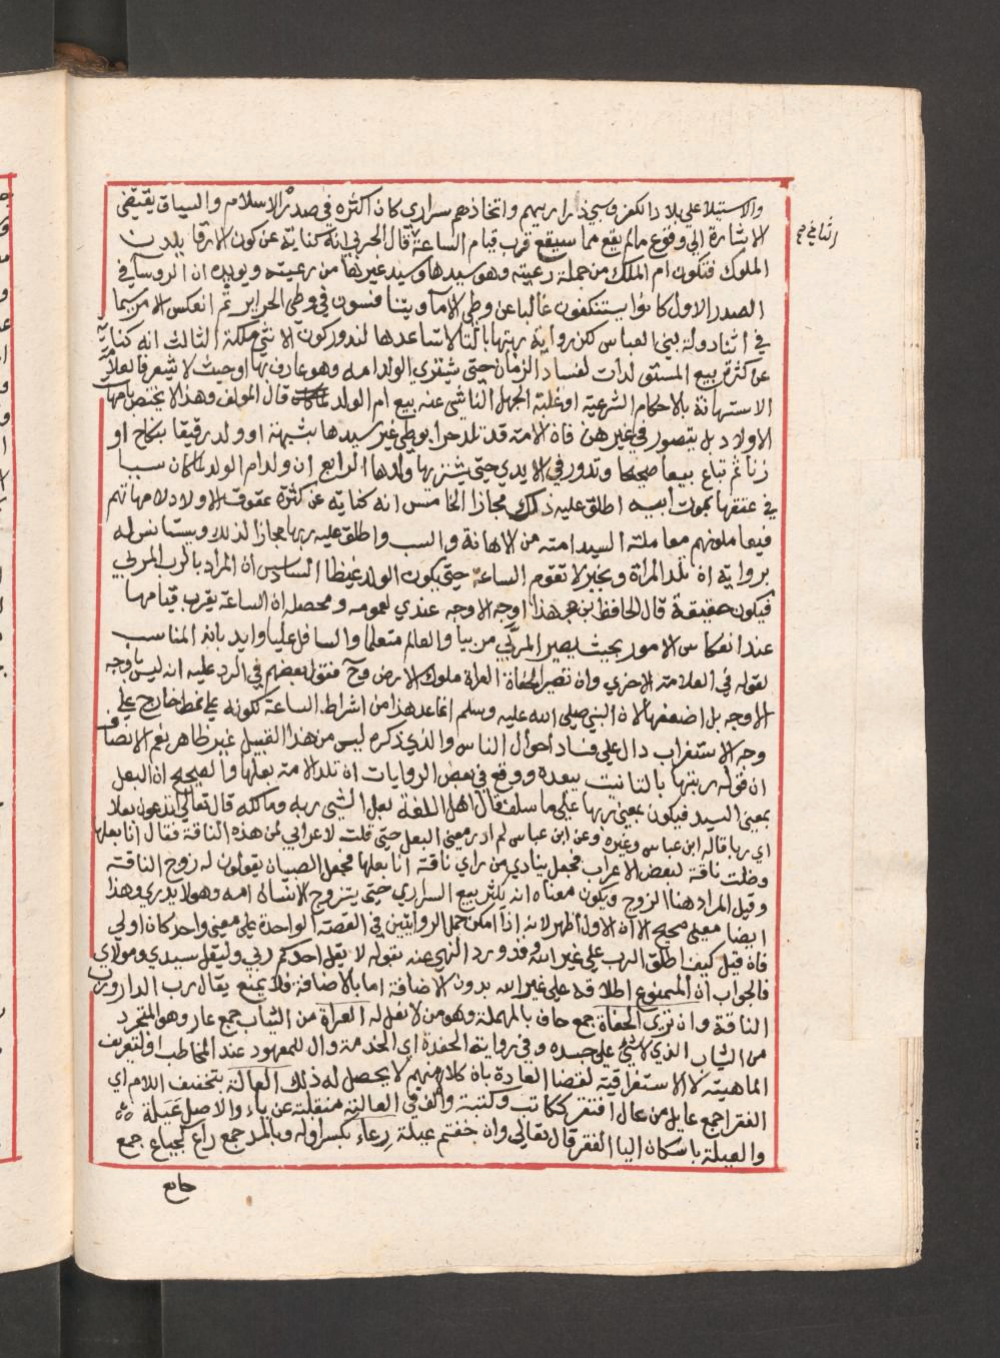 والاستيلا علي بلاد الكفر وسبي ذراريهم واتخاذهم سراري كان اكثره في صدر الاسلام والسياق يقتضي
الاشارة الي وقوع مالم يقع مما سيقع قرب قيام الساعة قال الحربي انه كناية عن كون الارقا يلدن
الثاني صح
الملوك فتكون ام الملك من جملة رعيته وهو سيدها وسيد غيرها من رعيته ويويده ان الروسا في
الصدر الاول كانوا يستنكفون غالبا عن وطي الاما ويتنافسون في وطي الحراير ثم انعكس الامر سيما
في اثنا دولة بني العباس لكن رواية ربتها بالتا لا تساعدها لندور كون الانثي ملكة الثالث انه كناية
عن كثرة بيع المستولدات لفساد الزمان حتي يشتري الولد امه وهو عارف بها او حيث لا يشعر فالعلامة
الاستهانة بالاحكام الشرعية او غلبة الجهل الناشي عنه بيع ام الولد قال المولف وهذا لا يختص بامهات
الاولاد بل يتصور في غيرهن فان الامة قد تلد حرا بوطي غير سيدها بشبهة او ولد رقيقا بنكاح او
زنا ثم تباع بيعا صحيحا وتدور في الايدي حتي يشتريها ولدها الرابع ان ولد ام الولد لما كان سببا
في عتقها بموت ابيه اطلق عليه ذلك مجازا الخامس انه كناية عن كثرة عقوق الاولاد لامهاتهم
فيعاملونهم معاملة السيد امته من الاهانة والسب واطلق عليه ربها مجازا لذلك ويستانس له
برواية ان تلد المراة وبخبر لا تقوم الساعة حتي يكون الولد غيظا السادس ان المراد بالرب المربي
فيكون حقيقة قال الحافظ بن حجر هذا اوجه الاوجه عندي لعمومه ومحصله ان الساعة يقرب قيامها
عند انعكاس الامور بحيث يصير المربي مربيا والعالم متعلما والسافل عليا وايد بانه المناسب
لقوله في العلامة الاخري وان تصير الحفاة العراة ملوك الارض وح فنقول بعضهم في الرد عليه انه ليس باوجه
الاوجه بل اضعفها لان النبي صلي الله عليه وسلم انما عد هذا من اشراط الساعة لكونه علي نمط خارج علي
وجه الاستغراب دال علي فساد احوال الناس والذي ذكره ليس من هذا القبيل غير ظاهر نعم الانصاف
ان قوله ربتها بالتانيث يبعده ووقع في بعض الروايات ان تلد الامة بعلها والصحيح ان البعل
بمعني السيد فيكون بمعني ربها علي ما سلف قال اهل اللغة بعل الشي ربه ومالكه قال تعالي اتدعون بعلا
اي ربا قاله ابن عباس وغيره وعن ابن عباس لم ادر معني البعل حتي قلت لاعرابي لمن هذه الناقة فقال انا بعلها
وضلت ناقة لبعض الاعراب فجعل ينادي من راي ناقة انا بعلها فجعل الصبيان يقولون له زوج الناقة
وقيل المراد هنا الزوج ويكون معناه انه يكثر بيع السراري حتي يتزوج الانسان امه وهو لا يدري وهذا
ايضا معني صحيح الا ان الاول اظهر لانه اذا امكن حمل الروايتين في القصة الواحدة علي معني واحد كان اولي
فان قيل كيف اطلق الرب علي غير الله وقد ورد النهي عنه بقوله لا يقل احدكم ربي وليقل سيدي ومولاي
فالجواب ان الممنوع اطلاقه علي غير الله بدون الاضافة اما بالاضافة فلا يمنع يقال رب الدار ورب
الناقة وان تري الحفاة جمع حاف بالمهملة وهو من لا نعل له العراة من الثياب جمع عار وهو المتجرد
من الثياب الذي لا شي علي جسده وفي رواية الحفدة اي الخدمة وال للمعهود عند المخاطب او لتعريف
الماهية لا الاستغراقية لقضا العادة بان كلا منهم لا يحصل له ذلك العالة بتخفيف اللام اي
الفقرا جمع عايل من عال افتقر ككاتب وكتبة والف في العالة منقلبة عن ياء والاصل عَيَلة
والعيلة باسكان اليا الفقر قال تعالي وان خفتم عيلة رعاء بكسر اوله وبالمد جمع راع كجياع جمع
جايع